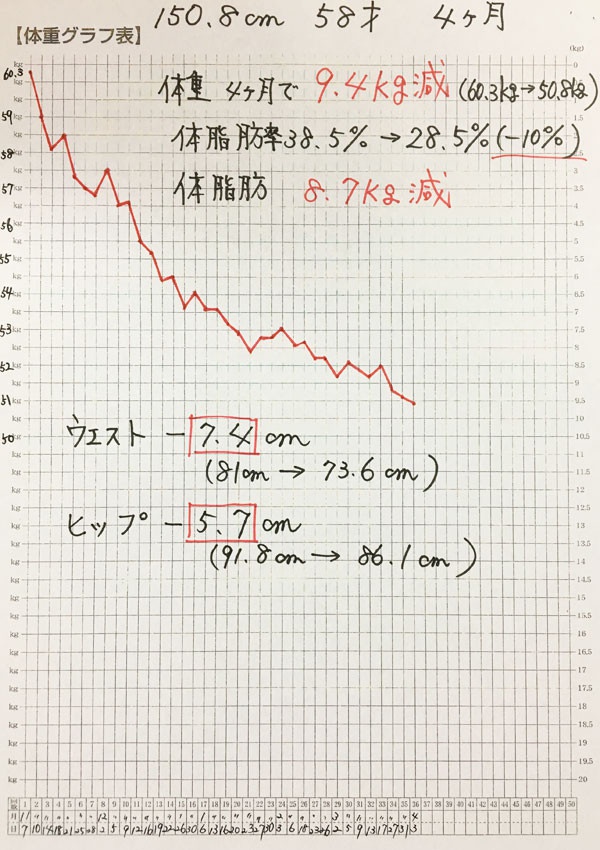 150.8cm 58才 4ヶ月
【体重グラフ表】
(kg)
体重 4ヶ月で 9.4kg減 (60.3kg→50.8kg)
体脂肪率38.5%→28.5%(-10%)
体脂肪 8.7kg減
60.3
59
58
57
56
55
54
53
52
51
50
ウエスト -7.4cm
(81cm → 73.6cm)
ヒップ -5.7cm
(91.8cm → 86.1cm)
0
1.5
2
2.5
3
3.5
4
4.5
5
5.5
6
6.5
7
7.5
8
8.5
9
9.5
10
10.5
11
11.5
12
12.5
13
13.5
14
14.5
15
15.5
16
16.5
17
17.5
18
18.5
19
19.5
20
回数 1 2 3 4 5 6 7 8 9 10 11 12 13 14 15 16 17 18 19 20 21 22 23 24 25 26 27 28 29 30 31 32 33 34 35 36 37 38 39 40 41 42 43 44 45 46 47 48 49 50
月 11 12 1 2 3 4
日 7 10 14 18 21 25 28 2 5 9 12 16 19 22 26 30 6 13 16 20